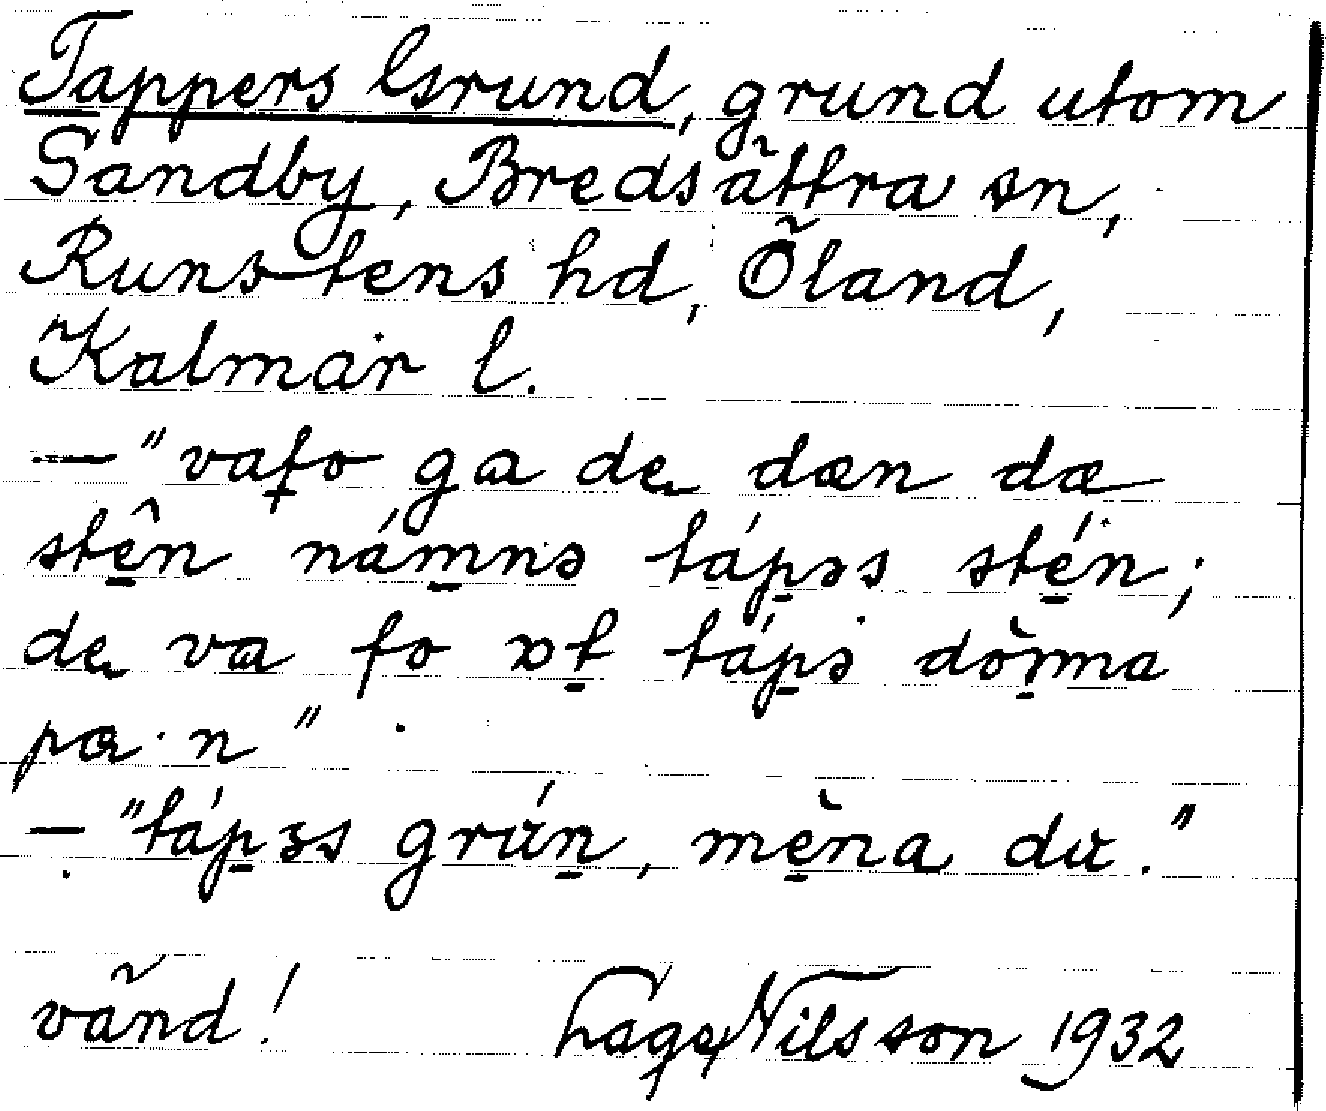 Tappers Grund, grund utom
Sandby, Bredsättra sn,
Runstens hd, Öland,
Kalmar l.
— "vafo ga de dæn dæ
stê̱n nám̱nə táp̱əs sté̱n;
de va fo ɒṯ táp̱ə dò̱rma
pɑ·n".
— "táp̱ɜs grúṉ, mè̱na du."
vänd! Lage Nilsson 1932